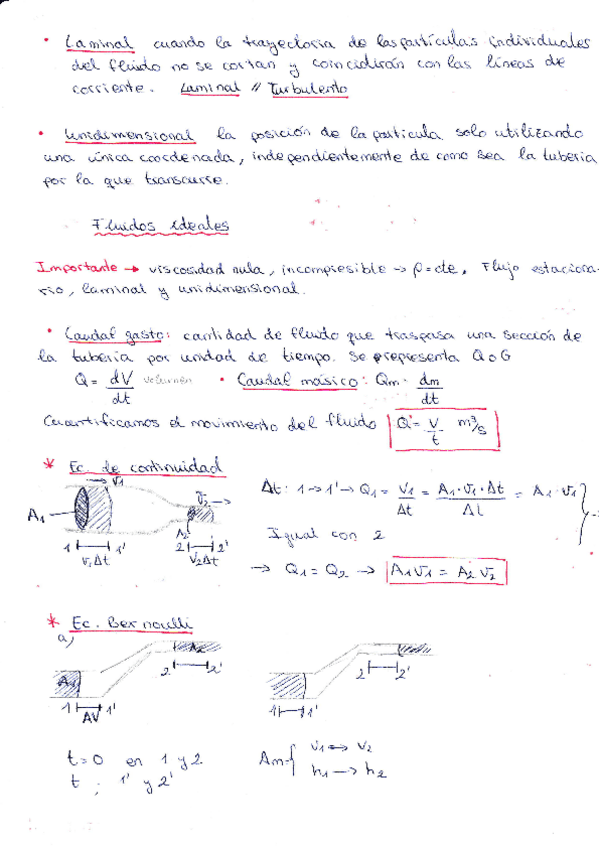 • Laminal cuando la trayectoria de las partículas individuales
del fluido no se cortan y coincidirán con las líneas de
corriente. Laminal // Turbulento
• Unidimensional la posición de la partícula solo utilizando
una única coordenada, independientemente de como sea la tubería
por la que transcurre.
Fluidos ideales
Importante → viscosidad nula, incompresible → ρ=cte, Flujo estaciona-
rio, laminal y unidimensional.
• Caudal gasto: cantidad de fluido que traspasa una sección de
la tubería por unidad de tiempo. Se representa Q o G
Q = dV/dt volumen • Caudal másico: Qm = dm/dt
Cuantificamos el movimiento del fluido Q = V/t m³/s
* Ec. de continuidad
v1 v2
A1 A2
1 1' 2 2'
v1Δt v2Δt
Δt: 1→1' → Q1 = V1/Δt = A1·v1·Δt/Δt = A1·v1
Igual con 2
→ Q1 = Q2 → A1v1 = A2v2
* Ec. Bernoulli
a)
A1 A2
1 1' 2 2'
ΔV
1 1' 2 2'
t=0 en 1 y 2
t ; 1' y 2'
Δm { v1 ↔ v2
h1 → h2